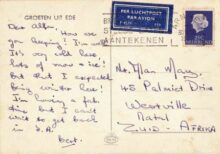 GROETEN UIT EDE
Dear Allen,
How are you keeping? I'm well
It's very cold here
lots of snow & ice!
But that I expected
being winter here!
I'm having a fine
time, but I
want to get back
in S.A.
Best.
PER LUCHTPOST
PAR AVION
AANTEKENEN
Mr. Alan
45 Palmiet Drive
Westville
Natal
ZUID. AFRIKA